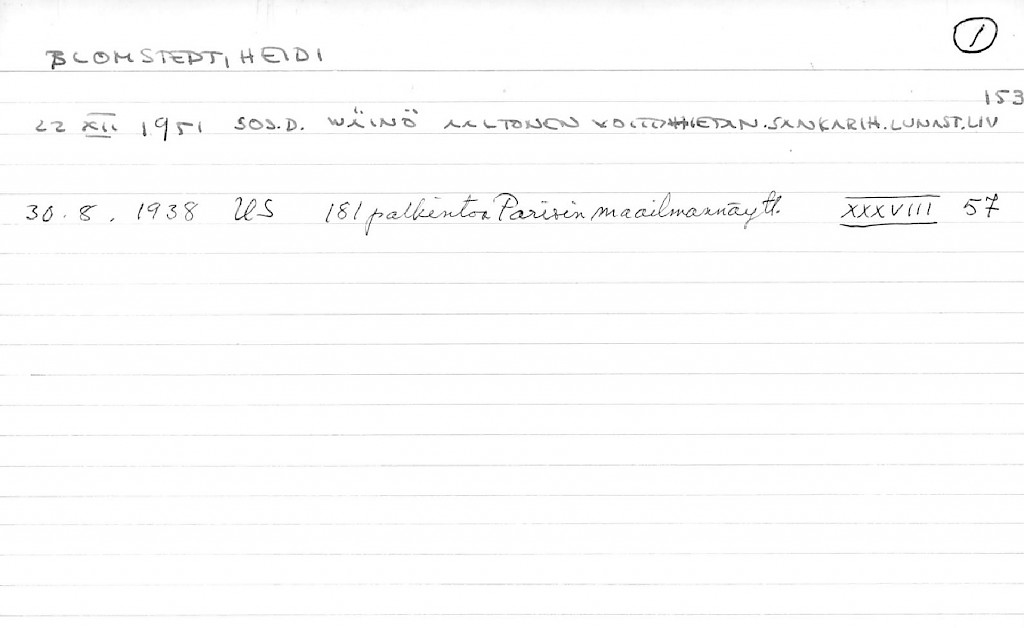 1
BLOMSTEDT, HEIDI
153
22 XII 1951 SOS.D. WÄINÖ AALTONEN VOITTI HIETAN. SANKARIH. LUNAST. LIV
30.8. 1938 US 181 palkintoa Parisin maailmannäytt. XXXVIII 57